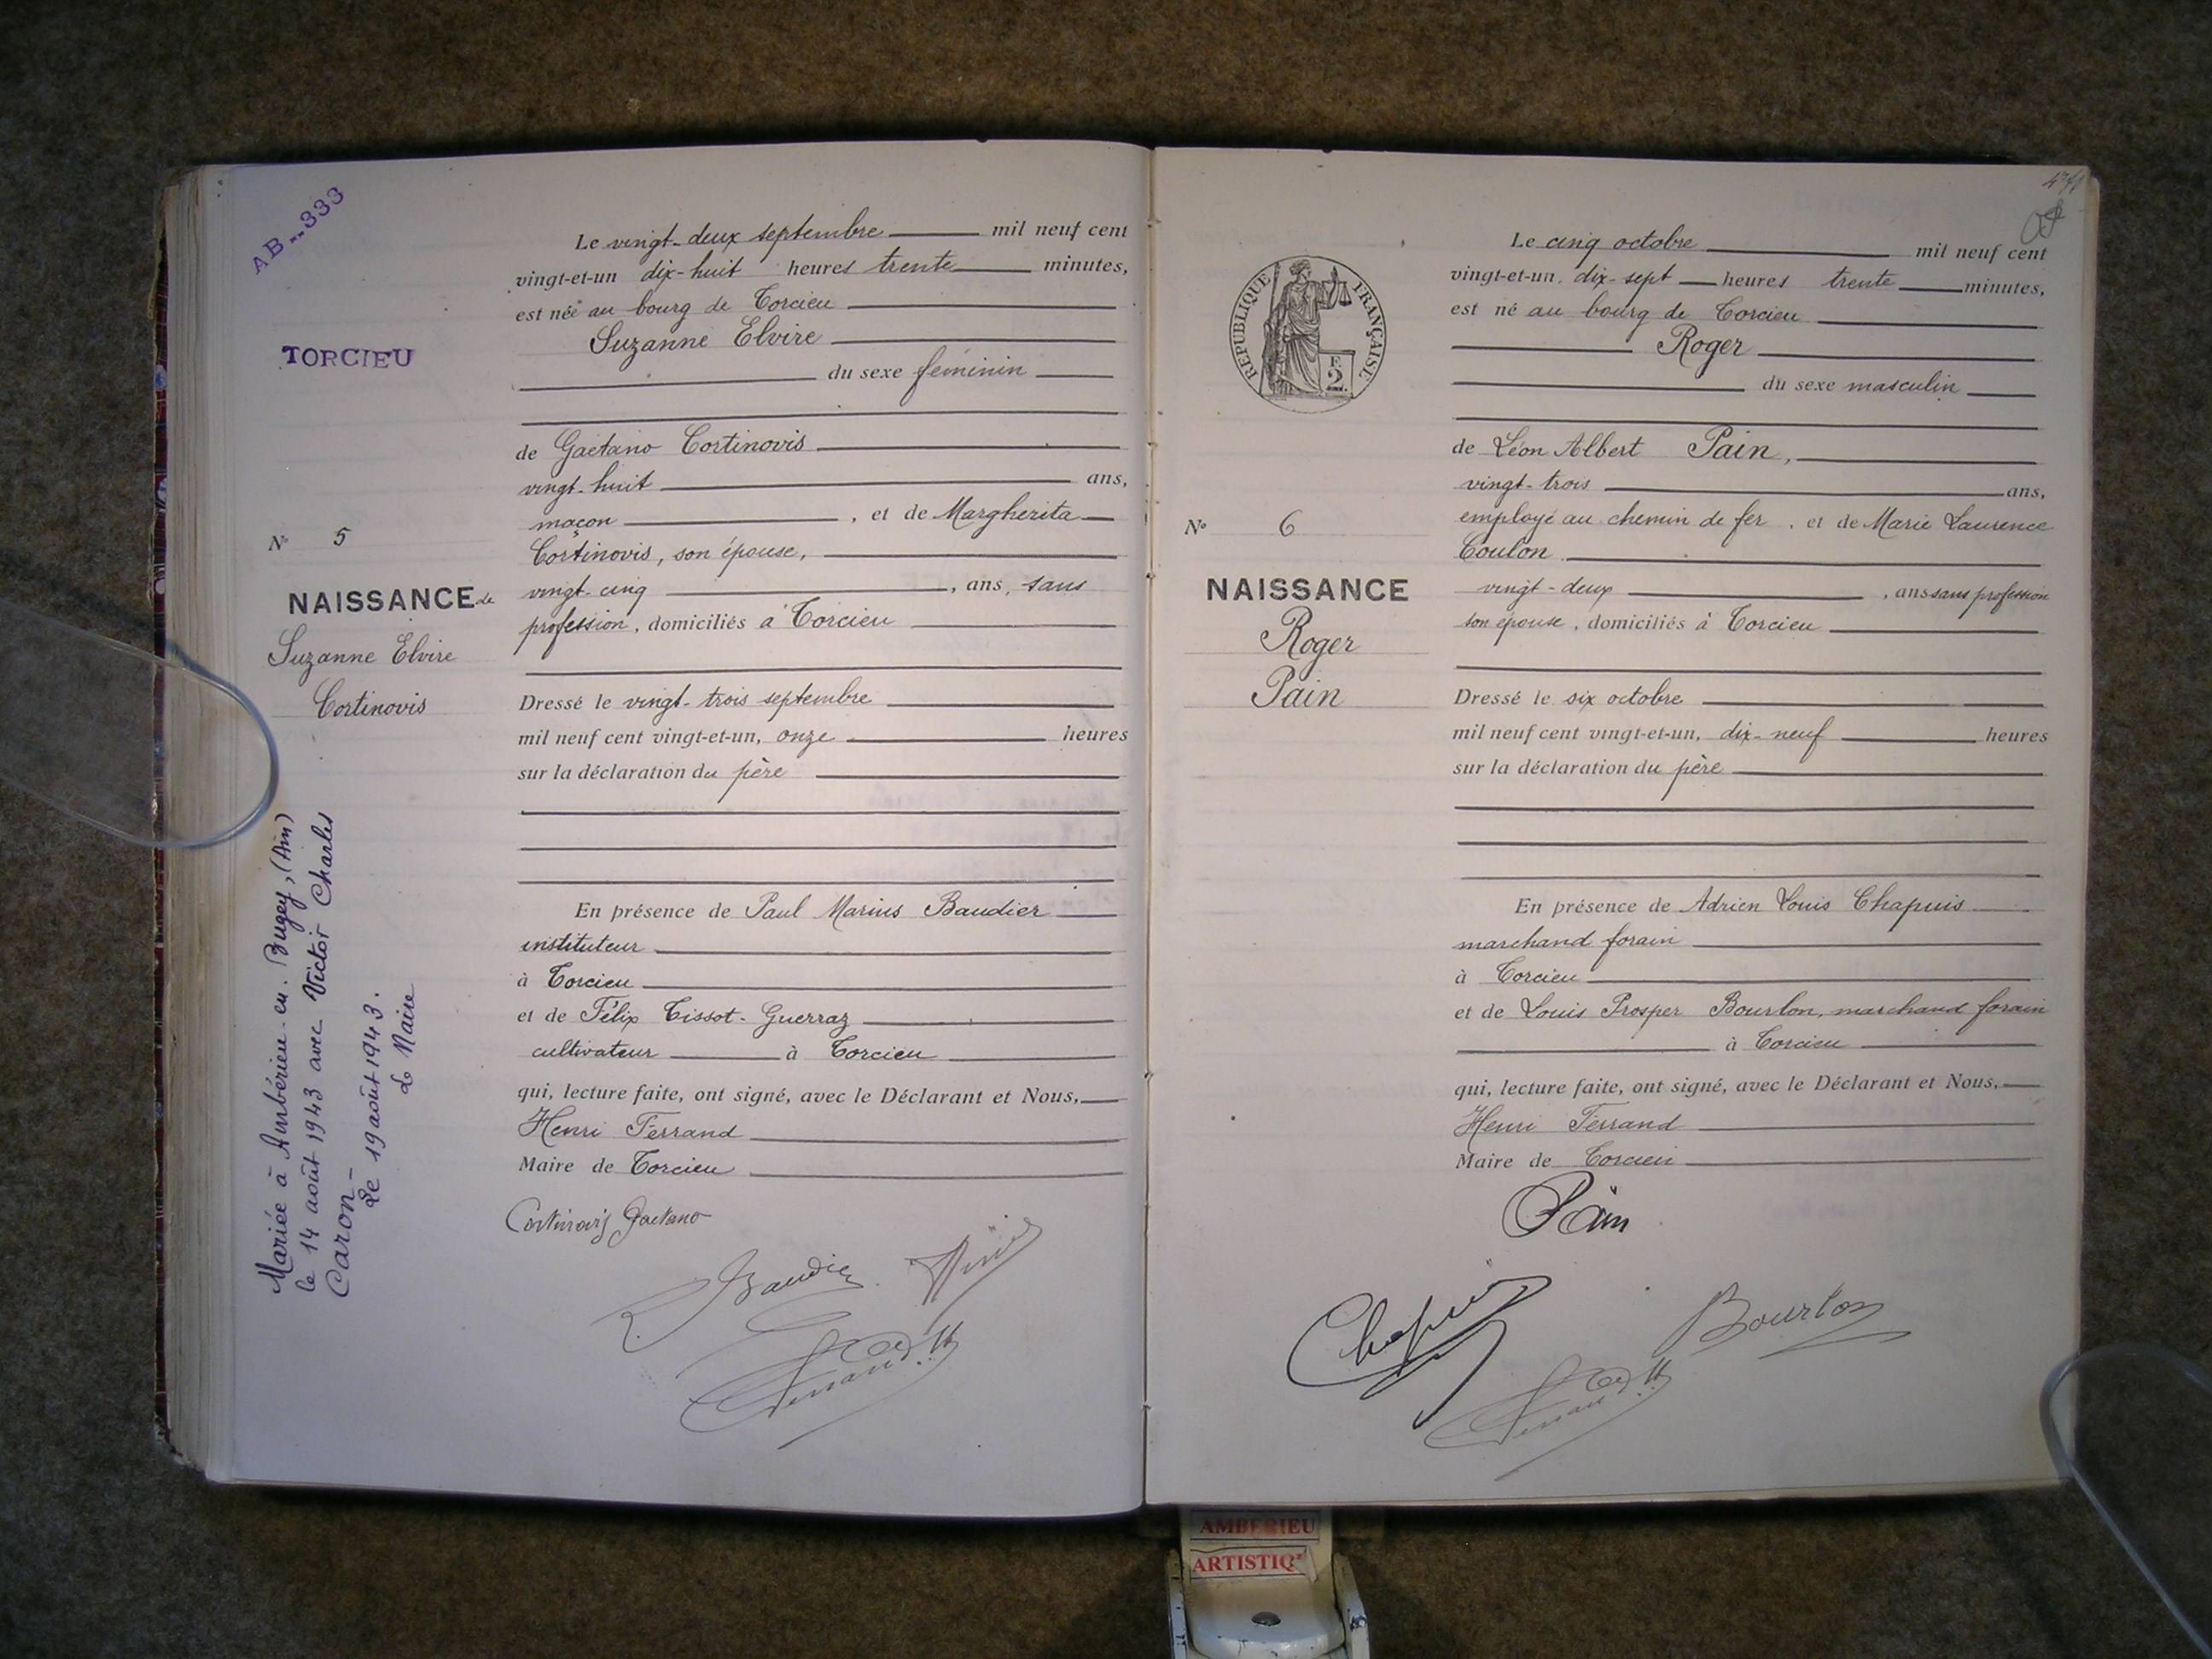 AB--333
TORCIEU
N° 5
NAISSANCE de
Suzanne Elvire
Cortinovis
Mariée à Ambérieu-en-Bugey, (Ain)
le 14 août 1943 avec Victor Charles
Caron -
Le 19 août 1943.
Le Maire
Le vingt-deux septembre mil neuf cent
vingt-et-un dix-huit heures trente minutes,
est née au bourg de Torcieu
Suzanne Elvire
du sexe féminin
de Gaetano Cortinovis
vingt-huit ans,
maçon, et de Margherita
Cortinovis, son épouse,
vingt-cinq, ans, sans
profession, domiciliés à Torcieu
Dressé le vingt-trois septembre
mil neuf cent vingt-et-un, onze heures
sur la déclaration du père
En présence de Paul Marius Baudier
instituteur
à Torcieu
et de Félix Tissot-Guerraz
cultivateur à Torcieu
qui, lecture faite, ont signé, avec le Déclarant et Nous,
Henri Ferrand
Maire de Torcieu
Cortinovis Gaetano
Baudier
Ferrand H
REPUBLIQUE FRANÇAISE
2
N° 6
NAISSANCE
Roger
Pain
Le cinq octobre mil neuf cent
vingt-et-un, dix-sept heures trente minutes,
est né au bourg de Torcieu
Roger
du sexe masculin
de Léon Albert Pain,
vingt-trois ans,
employé au chemin de fer, et de Marie Laurence
Coulon
vingt-deux, ans sans profession
son épouse, domiciliés à Torcieu
Dressé le six octobre
mil neuf cent vingt-et-un, dix-neuf heures
sur la déclaration du père
En présence de Adrien Louis Chapuis
marchand forain
à Torcieu
et de Louis Prosper Bourlon, marchand forain
à Torcieu
qui, lecture faite, ont signé, avec le Déclarant et Nous,
Henri Ferrand
Maire de Torcieu
Pain
Chapuis
Bourlon
Ferrand H
AMBERIEU
ARTISTIQ